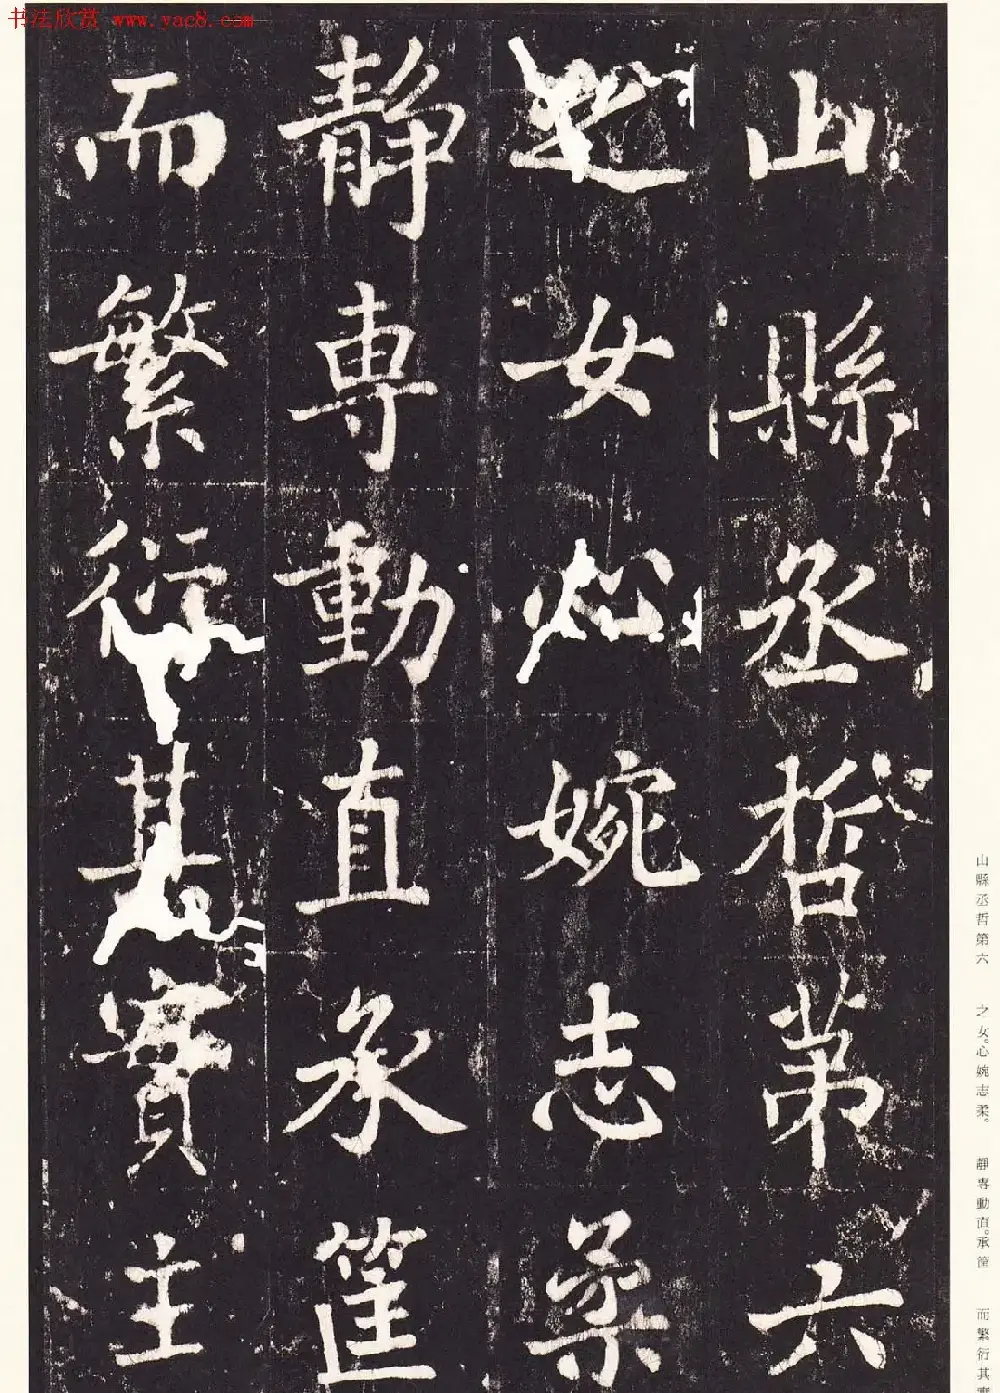 书法欣赏 www.yac8.com
山縣丞哲第六
之女心婉志柔
靜専動直承筐
而繁衍其實主
山縣丞哲第六
之女。心婉志柔。
靜専動直。承筐
而繁衍其實